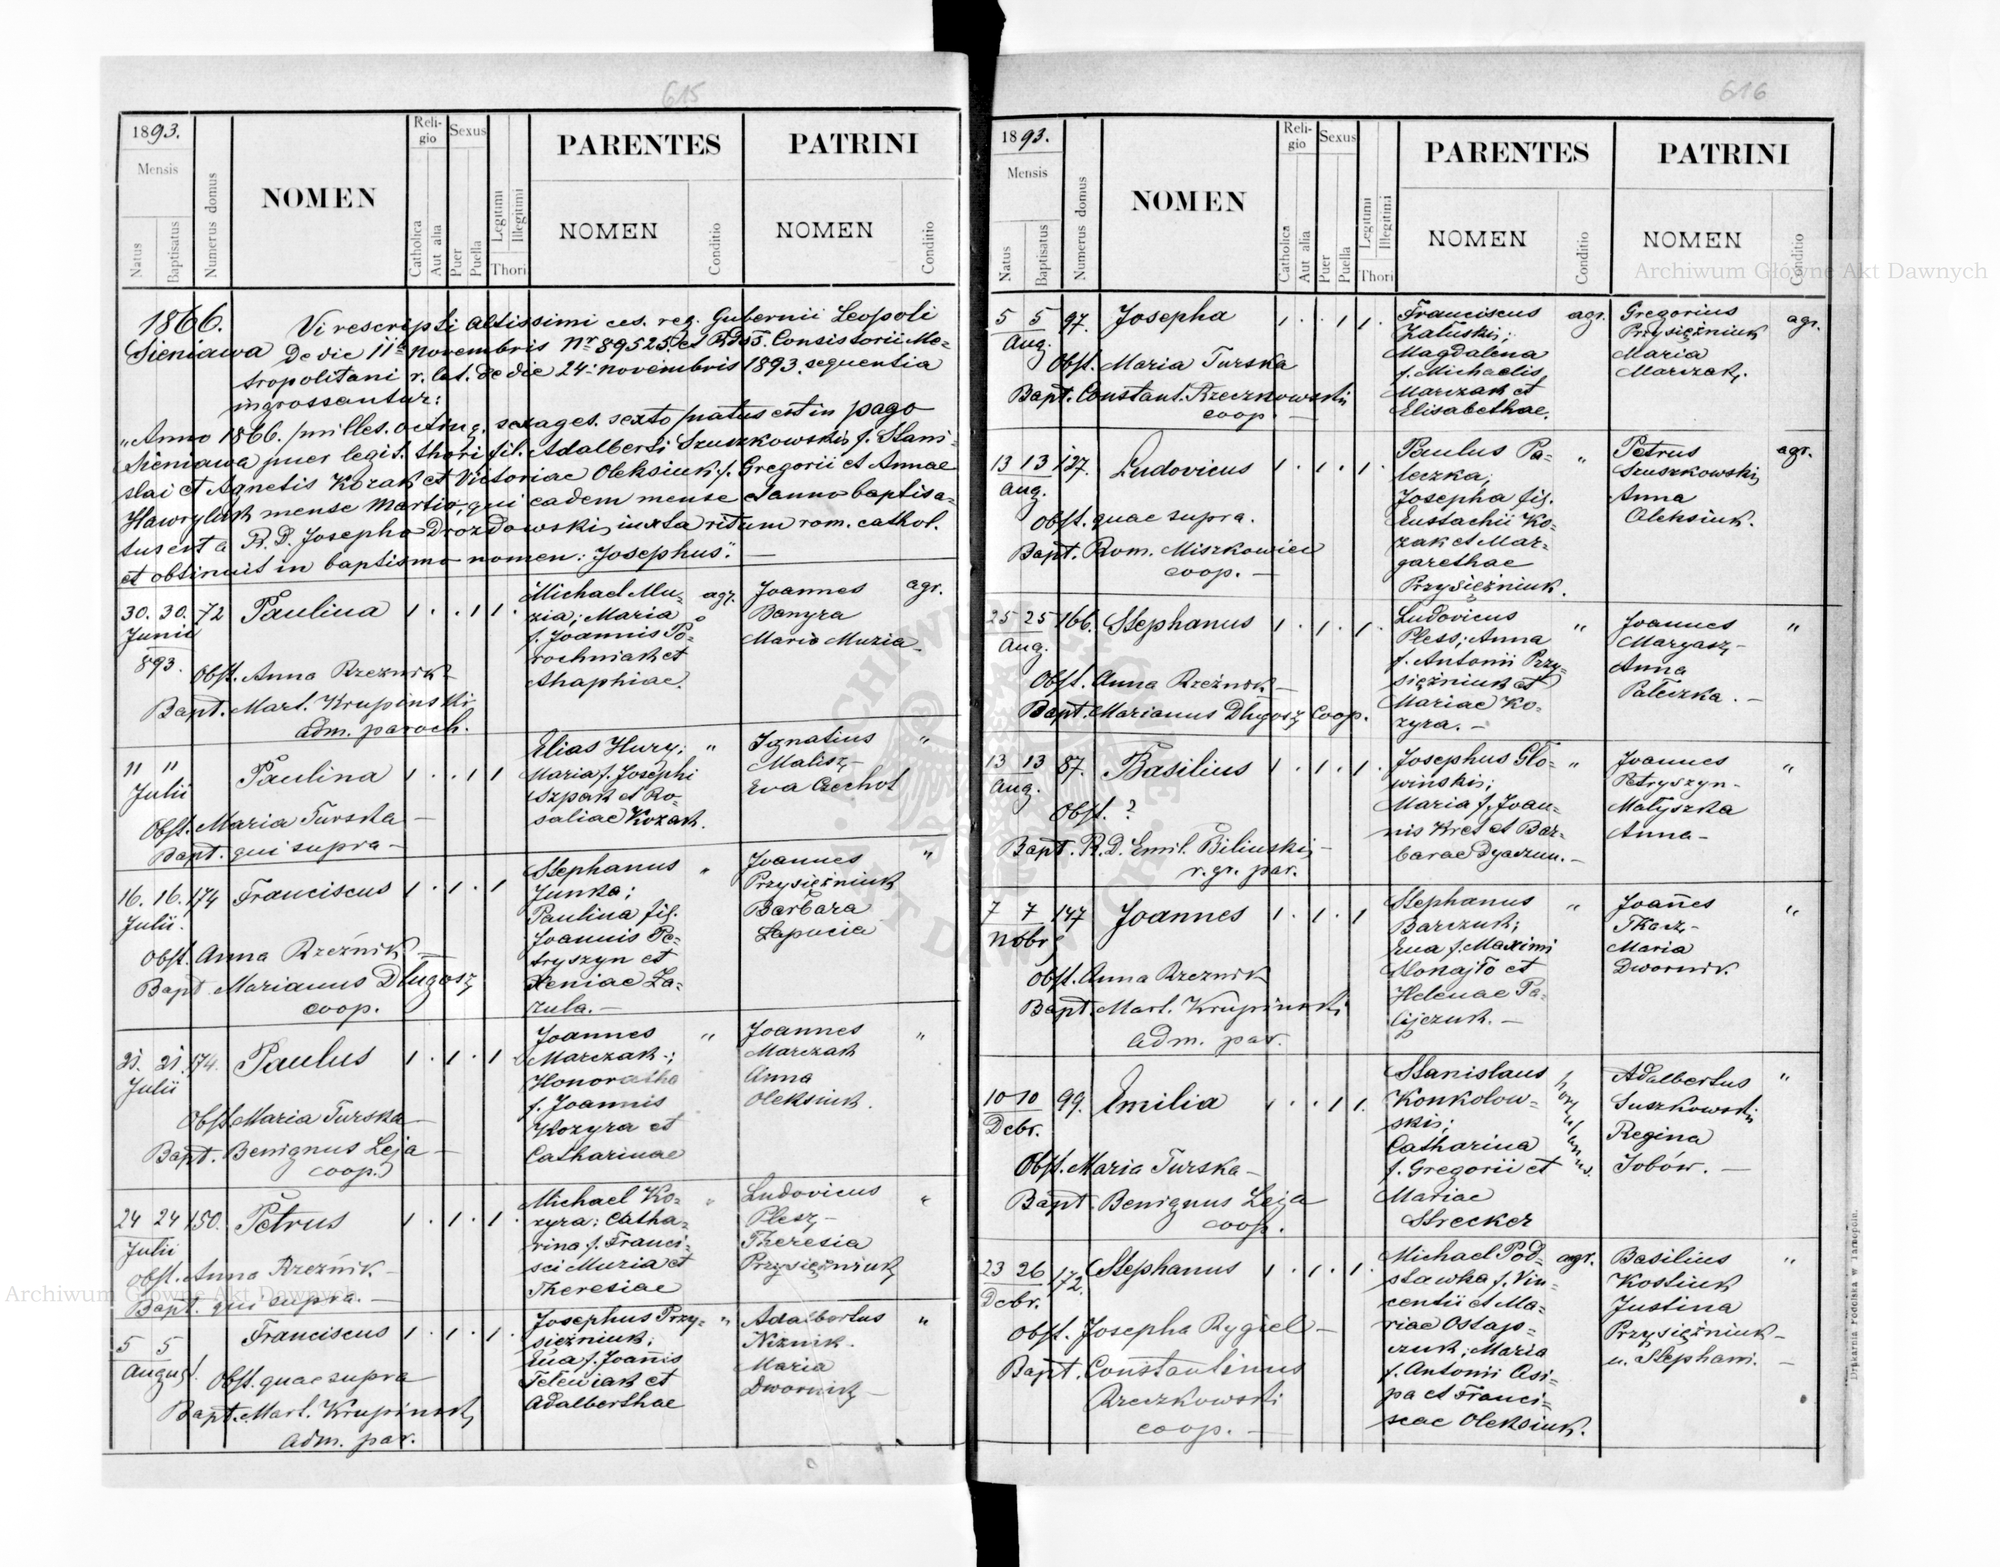 615
1893.
Mensis
Natus
Baptisatus
Numerus domus
NOMEN
Religio
Catholica
Aut alia
Sexus
Puer
Puella
Legitimi
Illegitimi
Thori
PARENTES
NOMEN
Conditio
PATRINI
NOMEN
Conditio
1866.
Sieniawa
Vi rescripti Altissimi ces. reg. Gubernii Leopoli
de die 11 novembris Nr 89525. et Consistorii Me-
tropolitani r. lat. de die 24. novembris 1893. sequentia
ingrossantur:
„Anno 1866. /milles. octing. sexages. sexto/ natus est in pago
Sieniawa puer legit. thori fil. Adalberti Szuszkowski, f. Stani-
slai et Agnetis Kozak et Victoriae Oleksiuk f. Gregorii et Annae
Hawryluk mense Martio, qui eadem mense et anno baptisa-
tus est a R. D. Josepho Drozdowski, iuxta ritum rom. cathol.
et obtinuit in baptismo nomen: Josephus." —
30. 30. 72 Paulina 1 . . 1 1 .
Junii
893.
Obst. Anna Rzeznik
Bapt. Mart. Krupinski
adm. paroch.
Michael Mu-
zia; Maria
f. Joannis Po-
rochniak et
Ahaphiae.
agr.
Joannes
Banyra
Maria Muzia.
agr.
11 11 Paulina 1 . . 1 1
Julii
Obst. Maria Turska —
Bapt. qui supra —
Elias Hury;
Maria f. Josephi
Szpak et Ro-
saliae Kozak.
"
Ignatius
Malisz
Eva Czechot
"
16. 16. 174 Franciscus 1 . 1 . 1
Julii.
Obst. Anna Rzeźnik —
Bapt Marianus Długosz
coop.
Stephanus
Junka;
Paulina fil.
Joannis Pe-
tryszyn et
Xeniae Za-
zula. —
"
Joannes
Przysiężniuk
Barbara
Łapucia
"
21. 21. 174. Paulus 1 . 1 . 1
Julii
Obst. Maria Turska —
Bapt. Benignus Leja —
coop.
Joannes
Marczak;
Honoratha
f. Joannis
Kozyra et
Catharinae
"
Joannes
Marczak
Anna
Oleksiuk.
"
24 24 150. Petrus 1 . 1 . 1 .
Julii
Obst. Anna Rzeźnik —
Bapt. qui supra. —
Michael Ko-
zyra; Catha-
rina f. Franci-
sci Muzia et
Theresiae
"
Ludovicus
Plesz —
Theresia
Przysiężniuk
"
5 5 Franciscus 1 . 1 . 1 .
August.
Obst. quae supra
Bapt. Mart. Krupinski
adm. par.
Josephus Przy-
siężniuk;
Eva f. Joannis
Televiak et
Adalberthae
"
Adalbertus
Niznik.
Maria
Dwornik —
"
616
1893.
Mensis
Natus
Baptisatus
Numerus domus
NOMEN
Religio
Catholica
Aut alia
Sexus
Puer
Puella
Legitimi
Illegitimi
Thori
PARENTES
NOMEN
Conditio
PATRINI
NOMEN
Conditio
5 5 97. Josepha 1 . . 1 1 .
Aug.
Obst. Maria Turska
Bapt. Constant. Rzeczkowski
coop. —
Franciscus
Załuski;
Magdalena
f. Michaelis
Marczak et
Elisabethae.
agr.
Gregorius
Przysiężniuk
Maria
Marczak.
agr.
13 13 127. Ludovicus 1 . 1 . 1 .
Aug.
Obst. quae supra.
Bapt. Rom. Miszkowicz
coop. —
Paulus Pa-
łeczka;
Josepha fil.
Eustachii Ko-
zak et Mar-
garethae
Przysiężniuk.
"
Petrus
Szuszkowski,
Anna
Oleksiuk.
agr.
25 25 166. Stephanus 1 . 1 . 1 .
Aug.
Obst. Anna Rzeźnik —
Bapt. Marianus Długosz coop.
Ludovicus
Pless; Anna
f. Antonii Przy-
siężniuk et
Mariae Ko-
zyra. —
"
Joannes
Margasz —
Anna
Pałeczka. —
"
13 13 87. Basilius 1 . 1 . 1 .
Aug.
Obst. ?
Bapt. R. D. Emil. Bilinski, —
r. gr. par.
Josephus Gło-
winski;
Maria f. Joan-
nis Kret et Bar-
barae Dyaczun. —
"
Joannes
Petryszyn —
Małyszka
Anna —
"
7 7 147 Joannes 1 . 1 . 1
Nobr.
Obst. Anna Rzeznik
Bapt. Mart. Krupinski
adm. par.
Stephanus
Barczuk;
Eva f. Maximi
Słonajło et
Helenae Pa-
lijczuk. —
"
Joannes
Tkacz —
Maria
Dwornik.
"
10 10 99. Emilia 1 . . 1 1.
Dcbr.
Obst. Maria Turska —
Bapt. Benignus Leja
coop.
Stanislaus
Konkolow-
ski;
Catharina
f. Gregorii et
Mariae
Strecker
hortulanus.
Adalbertus
Suszkowski
Regina
Jobów. —
"
23 26 172. Stephanus 1 . 1 . 1 .
Dcbr.
Obst. Josepha Rygiel —
Bapt. Constantinus
Rzeczkowski
coop. —
Michael Pod-
stawka f. Vin-
centii et Ma-
riae Ostap-
czuk; Maria
f. Antonii Osi-
pa et Franci-
scae Oleksiuk.
agr.
Basilius
Kostiuk
Justina
Przysiężniuk —
u. Stephani. —
"
Drukarnia Podolska w Tarnopolu.
Archiwum Główne Akt Dawnych
Archiwum Główne Akt Dawnych